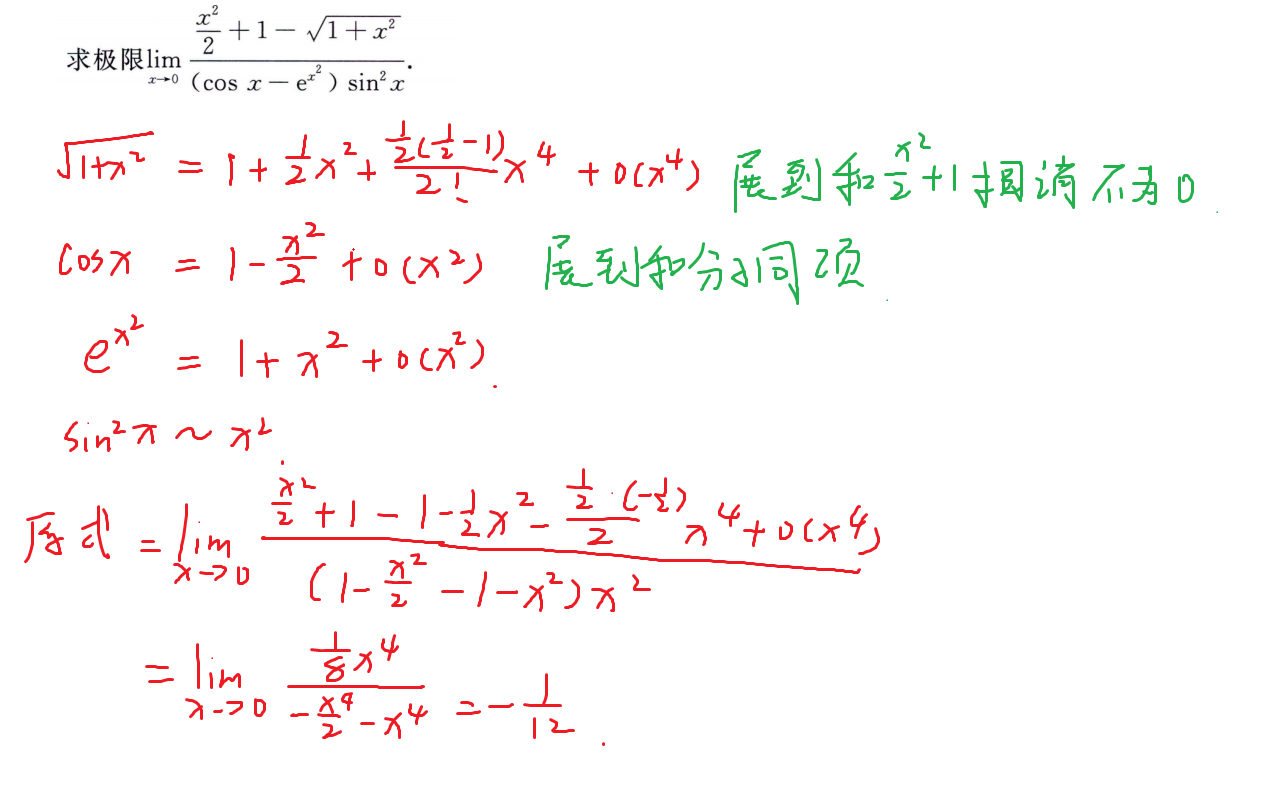 求极限 lim_{x→0} (x²/2 + 1 − √(1+x²)) / ((cos x − e^{x²}) sin² x).
√(1+x²) = 1 + 1/2 x² + (1/2(1/2 −1))/2! x⁴ + o(x⁴) 展到和 x²/2 + 1 相消不为0
cosx = 1 − x²/2 + o(x²) 展到和分子同项
e^{x²} = 1 + x² + o(x²)
sin²x ~ x²
原式 = lim_{x→0} (x²/2 + 1 − 1 − 1/2 x² − (1/2·(−1/2))/2 x⁴ + o(x⁴)) / ((1 − x²/2 − 1 − x²) x²)
= lim_{x→0} (1/8 x⁴) / (−x⁴/2 − x⁴) = − 1/12.